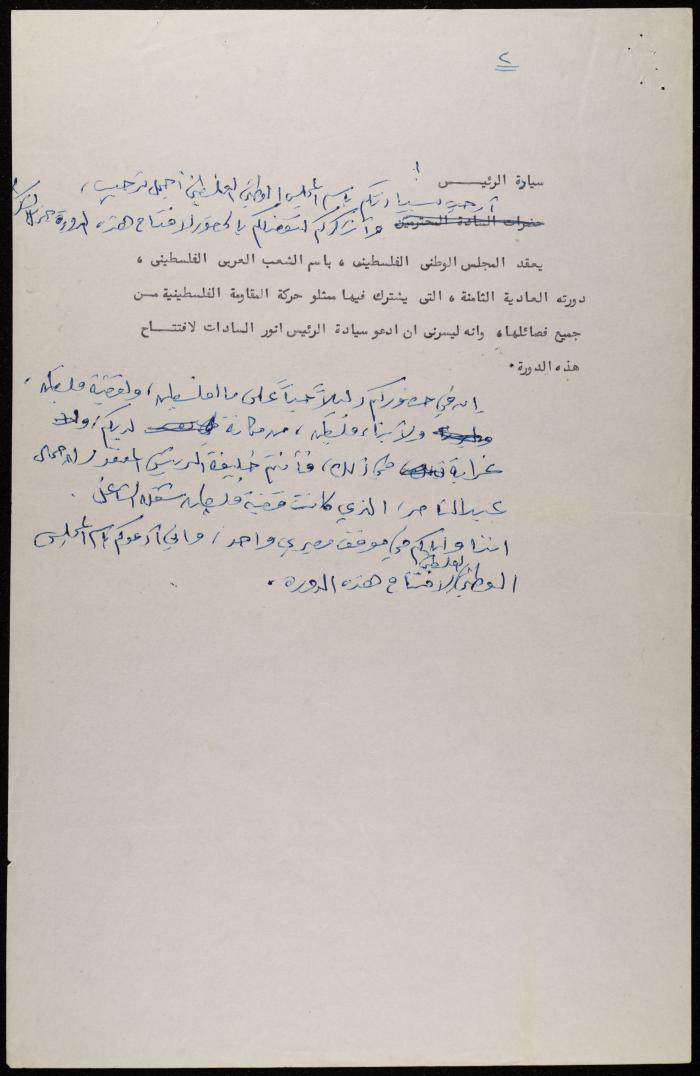 ٢
سيادة الرئيس !
أرحب بسيادتكم باسم المجلس الوطني الفلسطيني أجمل ترحيب ،
حضرات السادة المحترمين وأشكركم لتفضلكم بالحضور لافتتاح هذه الدورة جزيل الشكر
يعقد المجلس الوطنى الفلسطينى ، باسم الشعب العربى الفلسطينى ،
دورته العادية الثامنة ، التى يشترك فيها ممثلو حركة المقاومة الفلسطينية من
جميع فصائلها، وانه ليسرنى ان ادعو سيادة الرئيس انور السادات لافتتاح
هذه الدورة.
إن في حضوركم دليلاً حياً على ما لفلسطين ، ولقضية فلسطين ،
ولأبناء فلسطين ، من مكانة لديكم ، ولا
غرابة في ذلك ، فأنتم خليفة الرئيس الفقيد جمال
عبد الناصر ، الذي كانت قضية فلسطين شغله الشاغل .
اننا وإياكم في موقف مصيري واحد ، واني أدعوكم باسم المجلس
الوطني الفلسطيني لافتتاح هذه الدورة .